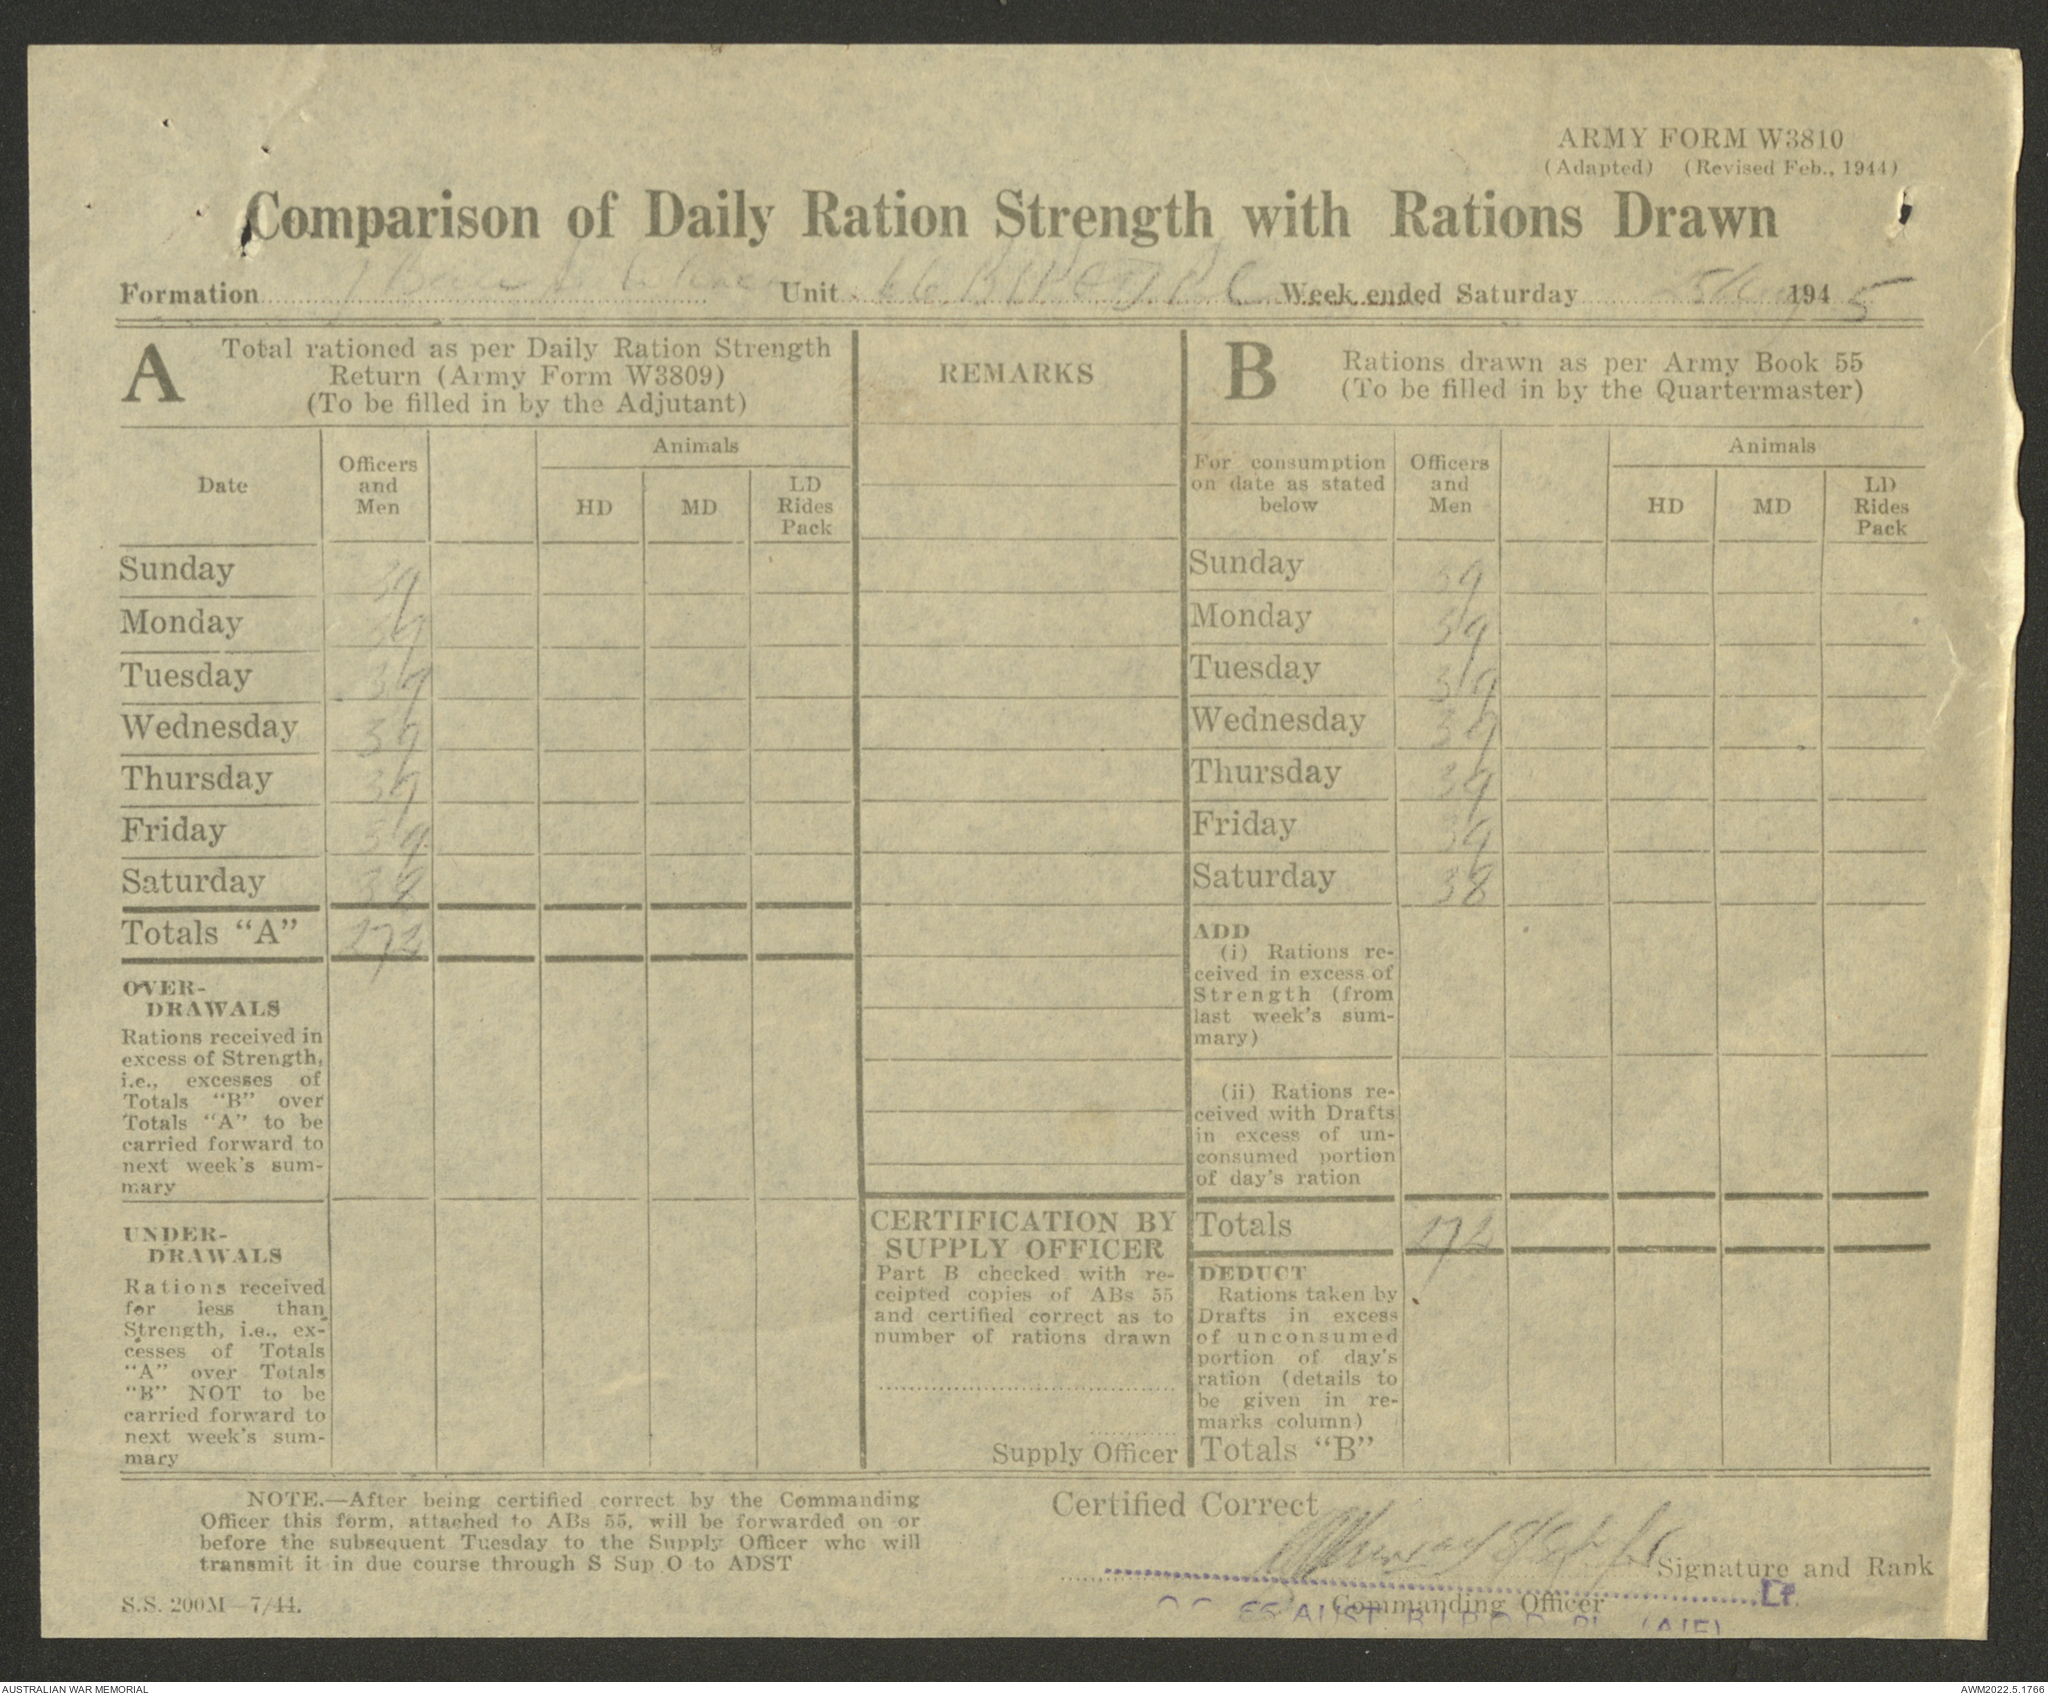 ARMY FORM W3810
(Adapted) (Revised Feb., 1944)
Comparison of Daily Ration Strength with Rations Drawn
Formation Unit 66 Week ended Saturday 1945
A Total rationed as per Daily Ration Strength
Return (Army Form W3809)
(To be filled in by the Adjutant)
REMARKS
B Rations drawn as per Army Book 55
(To be filled in by the Quartermaster)
Date
Officers
and
Men
Animals
HD MD LD
Rides
Pack
For consumption
on date as stated
below
Officers
and
Men
Animals
HD MD LD
Rides
Pack
Sunday 39
Monday 39
Tuesday 39
Wednesday 39
Thursday 39
Friday 39
Saturday 38
Totals "A" 272
OVER-
DRAWALS
Rations received in
excess of Strength,
i.e., excesses of
Totals "B" over
Totals "A" to be
carried forward to
next week's sum-
mary
UNDER-
DRAWALS
Rations received
for less than
Strength, i.e., ex-
cesses of Totals
"A" over Totals
"B" NOT to be
carried forward to
next week's sum-
mary
CERTIFICATION BY
SUPPLY OFFICER
Part B checked with re-
ceipted copies of ABs 55
and certified correct as to
number of rations drawn
Supply Officer
Sunday 39
Monday 39
Tuesday 39
Wednesday 39
Thursday 39
Friday 39
Saturday 38
ADD
(i) Rations re-
ceived in excess of
Strength (from
last week's sum-
mary)
(ii) Rations re-
ceived with Drafts
in excess of un-
consumed portion
of day's ration
Totals 272
DEDUCT
Rations taken by
Drafts in excess
of unconsumed
portion of day's
ration (details to
be given in re-
marks column)
Totals "B"
NOTE.—After being certified correct by the Commanding
Officer this form, attached to ABs 55, will be forwarded on or
before the subsequent Tuesday to the Supply Officer who will
transmit it in due course through S Sup O to ADST
S.S. 200M—7/44.
Certified Correct
Signature and Rank
Lt.
Commanding Officer
AUST. B.I.P.O.D. PL. (AIF)
AUSTRALIAN WAR MEMORIAL
AWM2022.5.1766